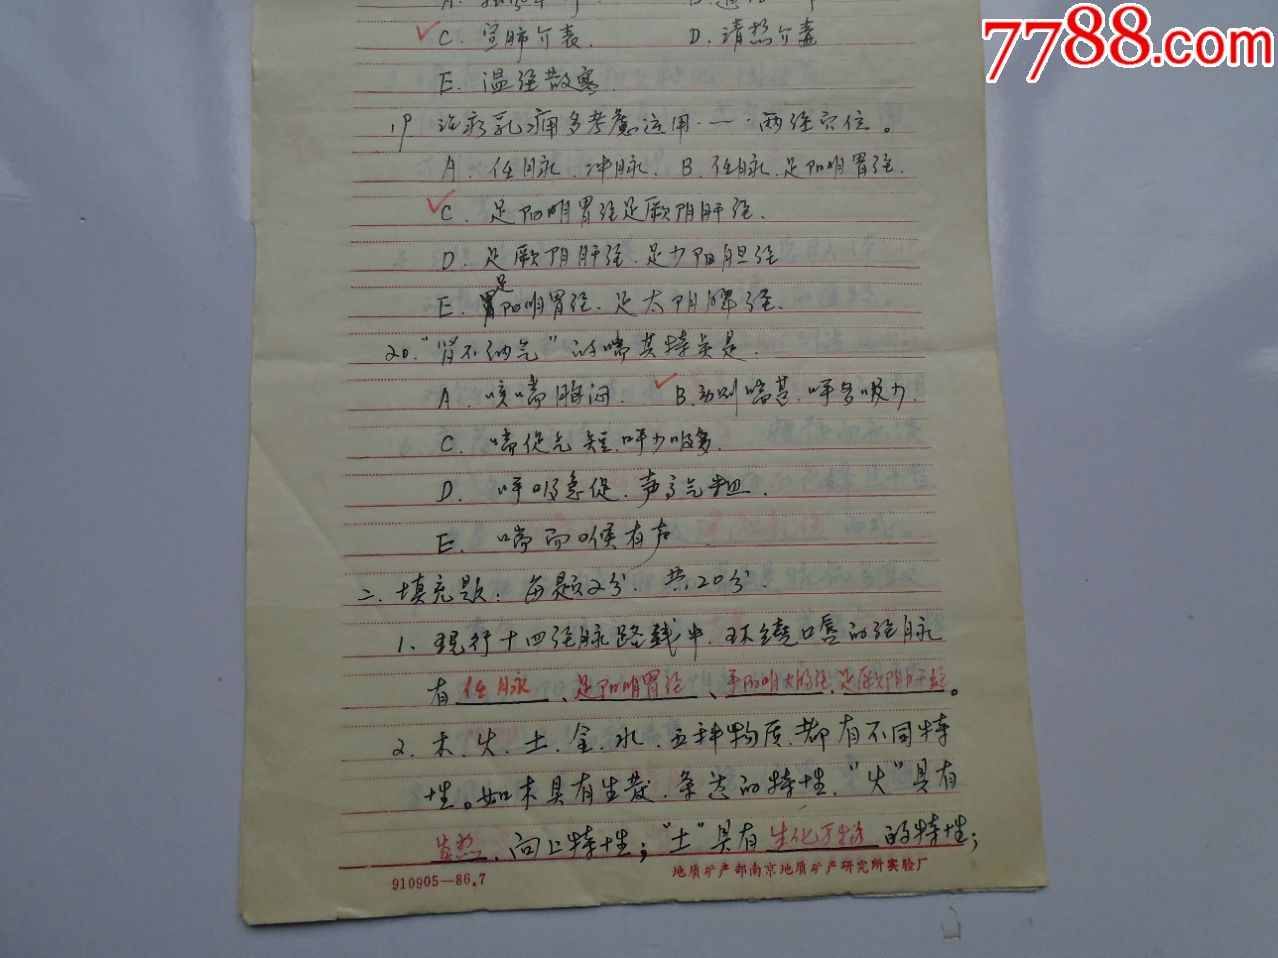 7788.com
C. 宣肺介表. D. 清热介毒
E. 温经散寒
19 治疗乳痈多考虑运用·一·两经穴位。
A. 任脉.冲脉. B. 任脉.足阳明胃经.
C. 足阳明胃经足厥阴肝经.
D. 足厥阴肝经.足少阳胆经
E. 足阳明胃经.足太阴脾经.
20. "肾不纳气"的喘其特点是.
A. 咳喘胸闷. B. 动则喘甚.呼多吸少.
C. 喘促气短.呼少吸多.
D. 呼吸急促.声高气粗.
E. 喘而喉有声.
二. 填充题: 每题2分. 共20分.
1. 现行十四经脉路线中.环绕口唇的经脉
有任脉、足阳明胃经、手阳明大肠经.足厥阴肝经。
2. 木.火.土.金.水.五种物质.都有不同特
性。如木具有生发.条达的特性."火"具有
炎热.向上特性;"土"具有生化万物的特性;
910905—86.7 地质矿产部南京地质矿产研究所实验厂